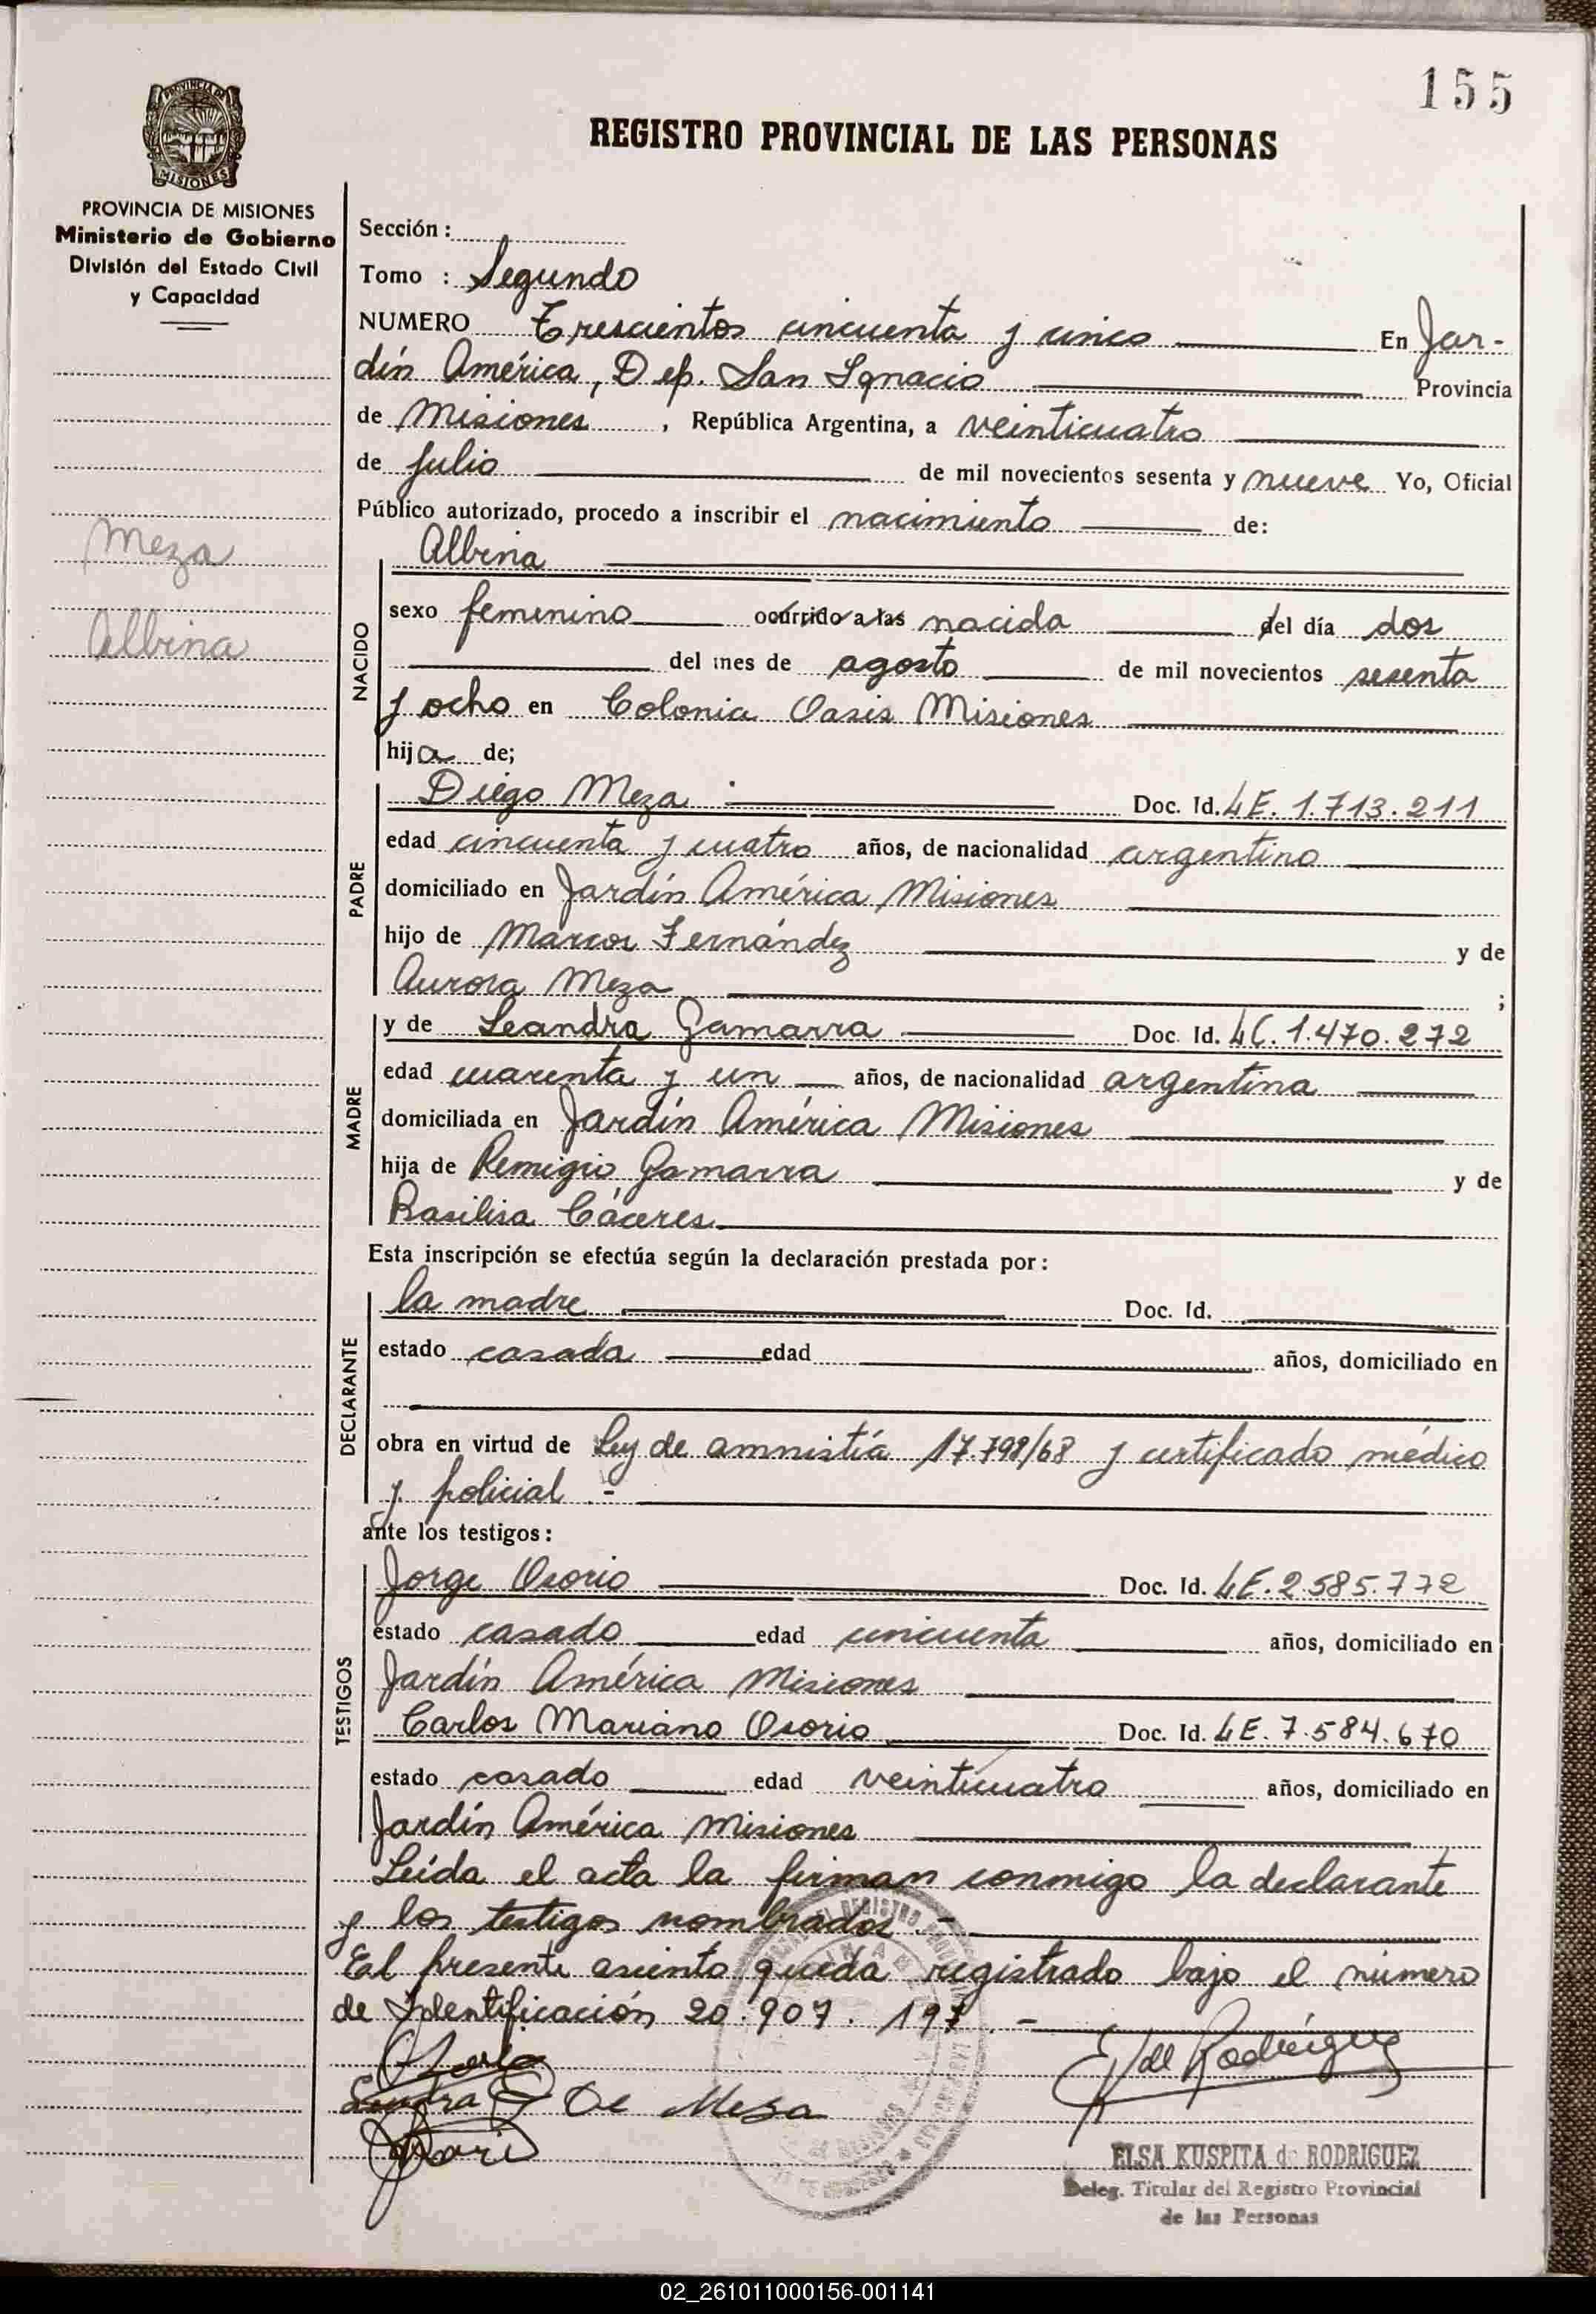 155
REGISTRO PROVINCIAL DE LAS PERSONAS
PROVINCIA DE MISIONES
MISIONES
PROVINCIA DE MISIONES
Ministerio de Gobierno
División del Estado Civil
y Capacidad
Meza
Albina
Sección :
Tomo : Segundo
NUMERO Trescientos cincuenta y cinco En Jar-
dín América, Dep. San Ignacio Provincia
de Misiones , República Argentina, a veinticuatro
de julio de mil novecientos sesenta y nueve Yo, Oficial
Público autorizado, procedo a inscribir el nacimiento de:
NACIDO
Albina
sexo femenino ocurrido a las nacida del día dos
del mes de agosto de mil novecientos sesenta
y ocho en Colonia Oasis Misiones
hija de;
PADRE
Diego Meza Doc. Id. LE. 1.713.211
edad cincuenta y cuatro años, de nacionalidad argentino
domiciliado en Jardín América Misiones
hijo de Marcos Fernández y de
Aurora Meza ;
MADRE
y de Leandra Gamarra Doc. Id. LC. 1.470.272
edad cuarenta y un años, de nacionalidad argentina
domiciliada en Jardín América Misiones
hija de Remigio Gamarra y de
Basilisa Cáceres
Esta inscripción se efectúa según la declaración prestada por:
DECLARANTE
la madre Doc. Id.
estado casada edad años, domiciliado en
obra en virtud de Ley de amnistía 17.798/68 y certificado médico
y policial .-
ante los testigos:
TESTIGOS
Jorge Osorio Doc. Id. LE. 2.585.772
estado casado edad cincuenta años, domiciliado en
Jardín América Misiones
Carlos Mariano Osorio Doc. Id. LE. 7.584.670
estado casado edad veinticuatro años, domiciliado en
Jardín América Misiones
Leída el acta la firman conmigo la declarante
y los testigos nombrados .-
El presente asiento queda registrado bajo el número
de Identificación 20.907.197 .-
E K de Rodríguez
de Mesa
ELSA KUSPITA de RODRIGUEZ
Deleg. Titular del Registro Provincial
de las Personas
02_261011000156-001141